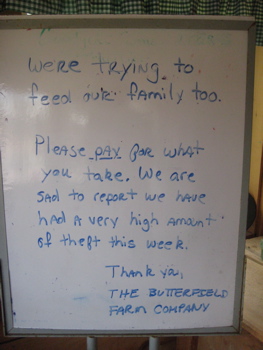 were trying to
feed our family too.
Please pay for what
you take. We are
sad to report we have
had a very high amount
of theft this week.
Thank you,
THE BUTTERFIELD
FARM COMPANY